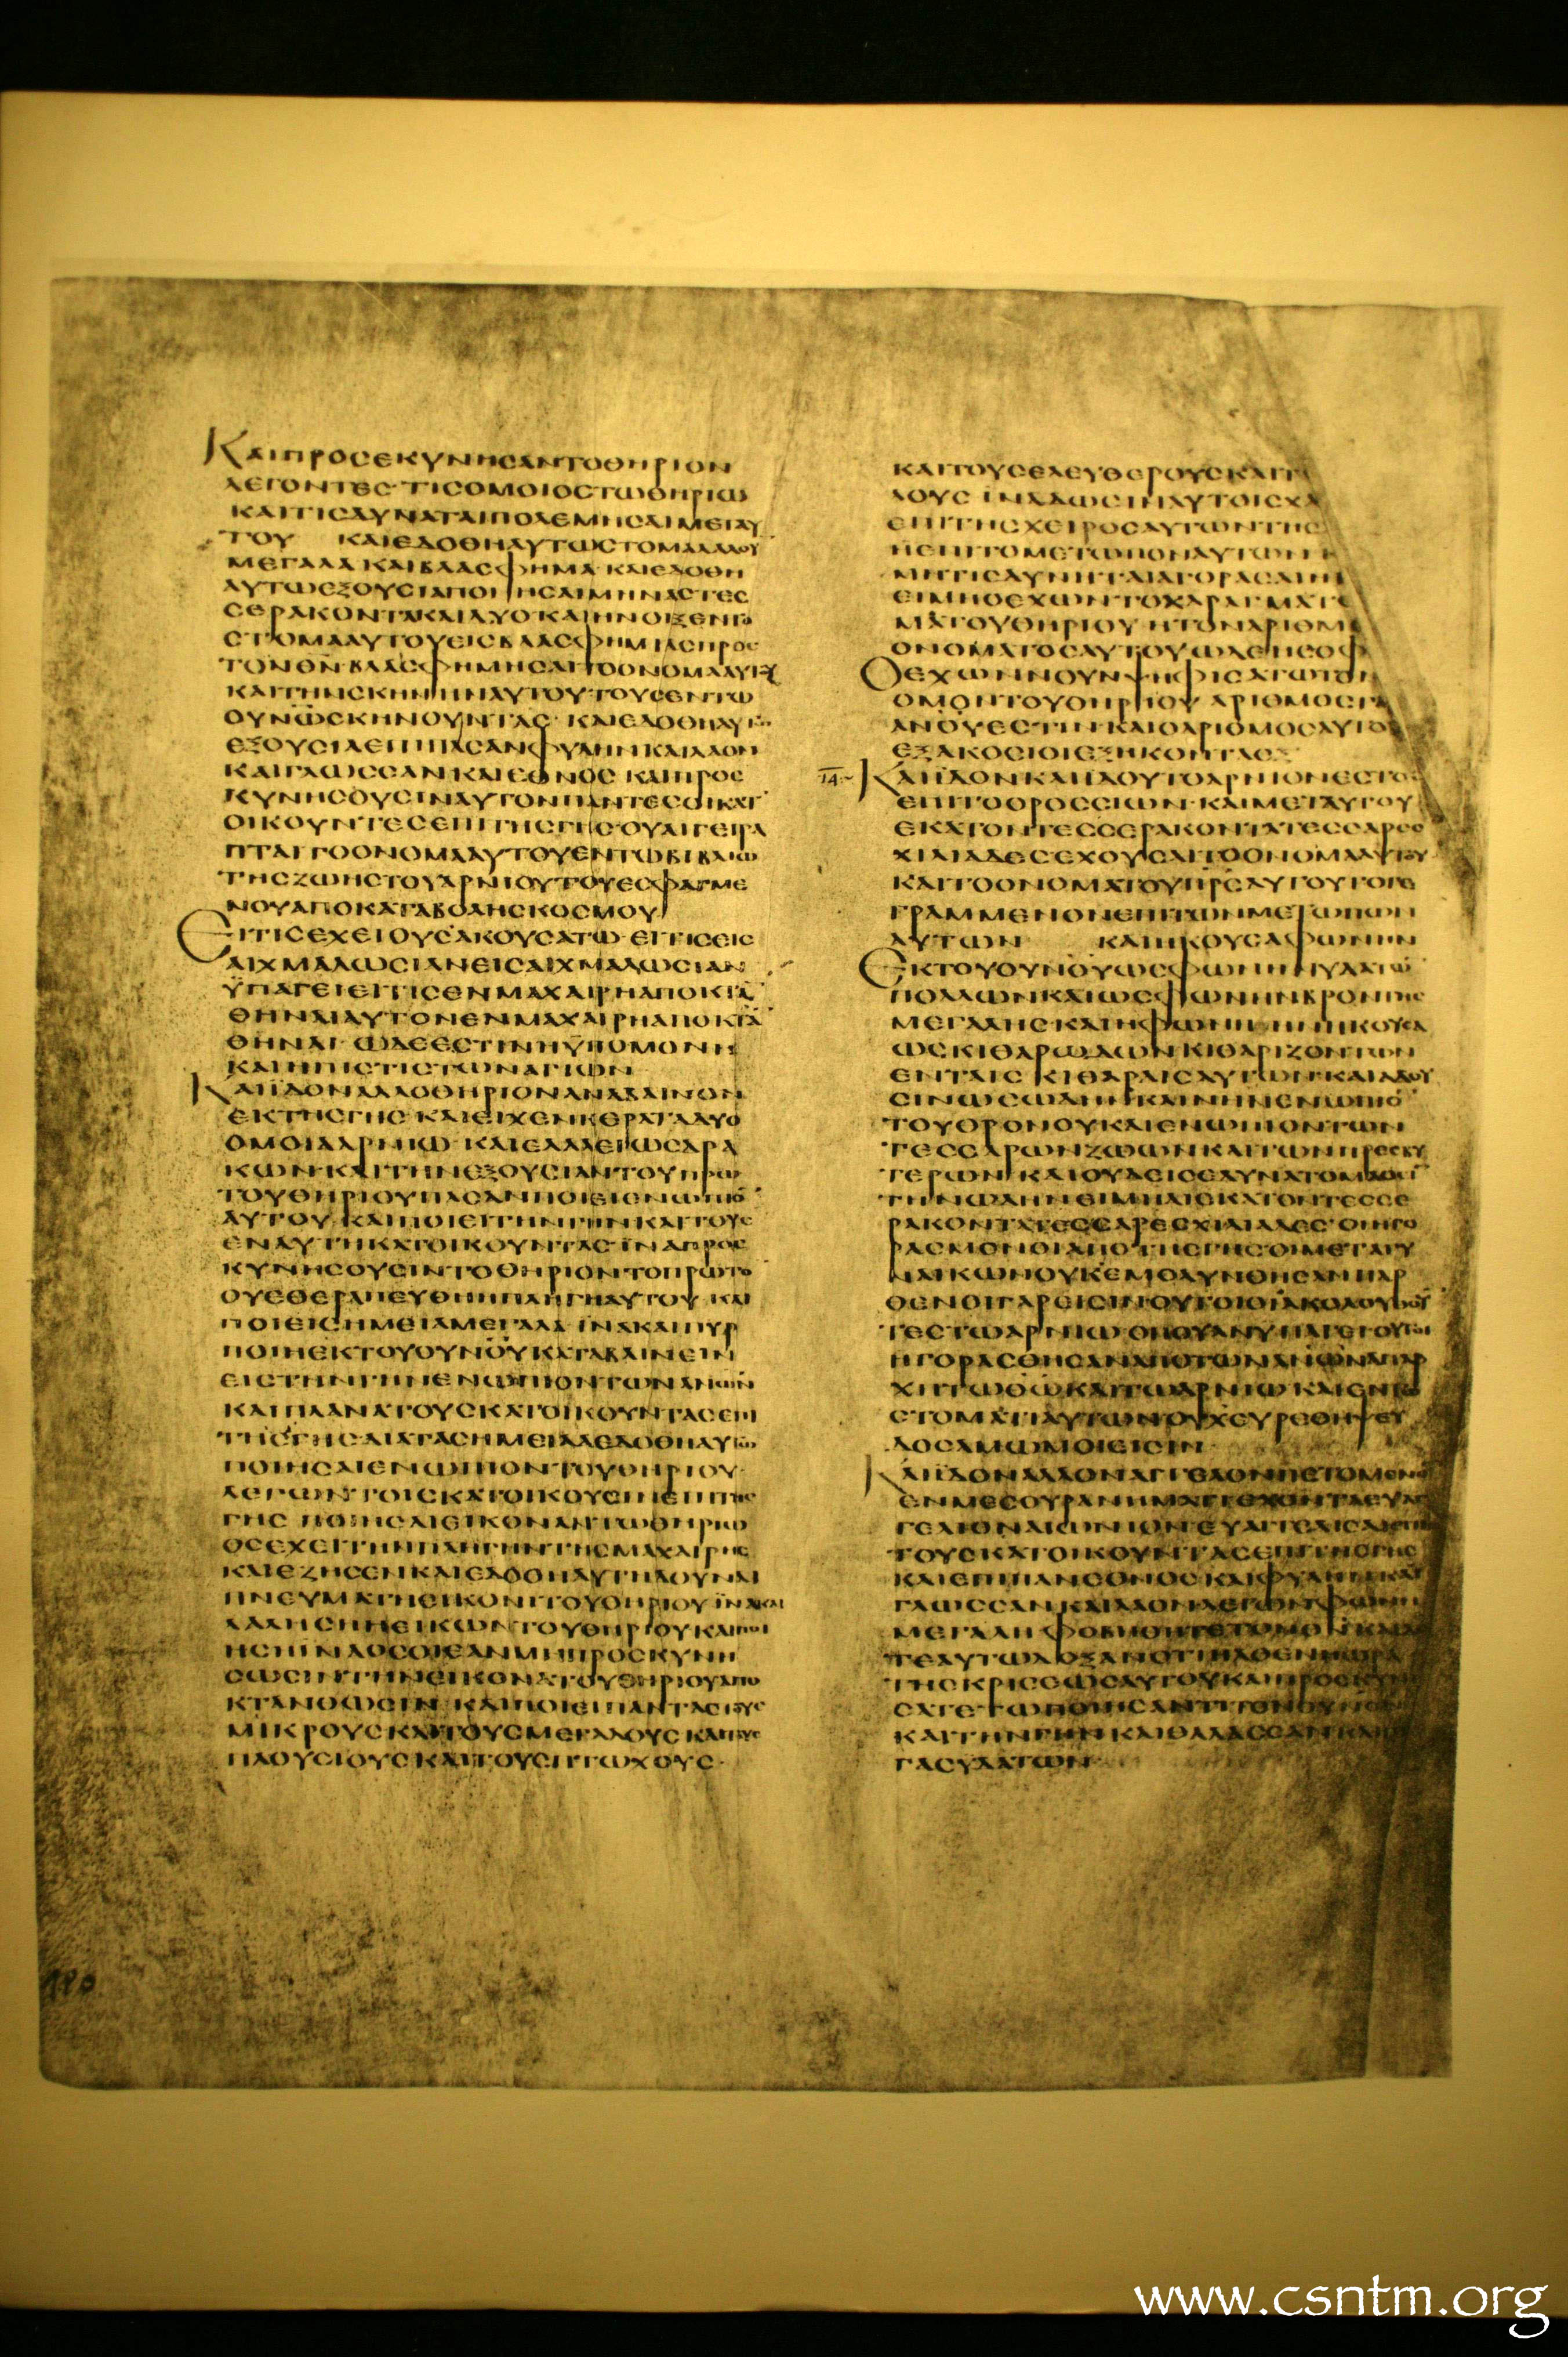 ΚΑΙΠΡΟΣΕΚΥΝΗΣΑΝΤΟΘΗΡΙΟΝ
ΛΕΓΟΝΤΕΣ ΤΙΣΟΜΟΙΟΣΤΩΘΗΡΙΩ
ΚΑΙΤΙΣΔΥΝΑΤΑΙΠΟΛΕΜΗΣΑΙΜΕΤΑΥ
ΤΟΥ ΚΑΙΕΔΟΘΗΑΥΤΩΣΤΟΜΑΛΑΛΟΥ
ΜΕΓΑΛΑΚΑΙΒΛΑΣΦΗΜΑ ΚΑΙΕΔΟΘΗ
ΑΥΤΩΕΞΟΥΣΙΑΠΟΙΗΣΑΙΜΗΝΑΣΤΕΣ
ΣΕΡΑΚΟΝΤΑΚΑΙΔΥΟΚΑΙΗΝΟΙΞΕΝΤΟ
ΣΤΟΜΑΑΥΤΟΥΕΙΣΒΛΑΣΦΗΜΙΑΣΠΡΟΣ
ΤΟΝΘΝΒΛΑΣΦΗΜΗΣΑΙΤΟΟΝΟΜΑΑΥΤΟΥ
ΚΑΙΤΗΝΣΚΗΝΗΝΑΥΤΟΥ ΤΟΥΣΕΝΤΩ
ΟΥΝΩΣΚΗΝΟΥΝΤΑΣ ΚΑΙΕΔΟΘΗΑΥΤΩ
ΕΞΟΥΣΙΑΕΠΙΠΑΣΑΝΦΥΛΗΝΚΑΙΛΑΟΝ
ΚΑΙΓΛΩΣΣΑΝΚΑΙΕΘΝΟΣ ΚΑΙΠΡΟΣ
ΚΥΝΗΣΟΥΣΙΝΑΥΤΟΝΠΑΝΤΕΣΟΙΚΑΤ
ΟΙΚΟΥΝΤΕΣΕΠΙΤΗΣΓΗΣΟΥΑΙΓΕΓΡΑ
ΠΤΑΙΤΟΟΝΟΜΑΑΥΤΟΥΕΝΤΩΒΙΒΛΙΩ
ΤΗΣΖΩΗΣΤΟΥΑΡΝΙΟΥΤΟΥΕΣΦΑΓΜΕ
ΝΟΥΑΠΟΚΑΤΑΒΟΛΗΣΚΟΣΜΟΥ
ΕΙΤΙΣΕΧΕΙΟΥΣΑΚΟΥΣΑΤΩ ΕΙΤΙΣΕΙΣ
ΑΙΧΜΑΛΩΣΙΑΝΕΙΣΑΙΧΜΑΛΩΣΙΑΝ
ΥΠΑΓΕΙΕΙΤΙΣΕΝΜΑΧΑΙΡΗΑΠΟΚΤΑ
ΘΗΝΑΙΑΥΤΟΝΕΝΜΑΧΑΙΡΗΑΠΟΚΤΑ
ΘΗΝΑΙ ΩΔΕΕΣΤΙΝΗΥΠΟΜΟΝΗ
ΚΑΙΗΠΙΣΤΙΣΤΩΝΑΓΙΩΝ
ΚΑΙΪΔΟΝΑΛΛΟΘΗΡΙΟΝΑΝΑΒΑΙΝΟΝ
ΕΚΤΗΣΓΗΣ ΚΑΙΕΙΧΕΝΚΕΡΑΤΑΔΥΟ
ΟΜΟΙΑΑΡΝΙΩ ΚΑΙΕΛΑΛΕΙΩΣΔΡΑ
ΚΩΝ ΚΑΙΤΗΝΕΞΟΥΣΙΑΝΤΟΥΠΡΩ
ΤΟΥΘΗΡΙΟΥΠΑΣΑΝΠΟΙΕΙΕΝΩΠΙΟ
ΑΥΤΟΥ ΚΑΙΠΟΙΕΙΤΗΝΓΗΝΚΑΙΤΟΥΣ
ΕΝΑΥΤΗΚΑΤΟΙΚΟΥΝΤΑΣ ΪΝΑΠΡΟΣ
ΚΥΝΗΣΟΥΣΙΝΤΟΘΗΡΙΟΝΤΟΠΡΩΤΟ
ΟΥΕΘΕΡΑΠΕΥΘΗΗΠΛΗΓΗΑΥΤΟΥ ΚΑΙ
ΠΟΙΕΙΣΗΜΕΙΑΜΕΓΑΛΑ ΪΝΑΚΑΙΠΥΡ
ΠΟΙΗΕΚΤΟΥΟΥΝΟΥΚΑΤΑΒΑΙΝΕΙΝ
ΕΙΣΤΗΝΓΗΝΕΝΩΠΙΟΝΤΩΝΑΝΩΝ
ΚΑΙΠΛΑΝΑΤΟΥΣΚΑΤΟΙΚΟΥΝΤΑΣΕΠΙ
ΤΗΣΓΗΣΔΙΑΤΑΣΗΜΕΙΑΑΕΔΟΘΗΑΥΤΩ
ΠΟΙΗΣΑΙΕΝΩΠΙΟΝΤΟΥΘΗΡΙΟΥ
ΛΕΓΩΝΤΟΙΣΚΑΤΟΙΚΟΥΣΙΝΕΠΙΤΗΣ
ΓΗΣ ΠΟΙΗΣΑΙΕΙΚΟΝΑΝΤΩΘΗΡΙΩ
ΟΣΕΧΕΙΤΗΝΠΛΗΓΗΝΤΗΣΜΑΧΑΙΡΗΣ
ΚΑΙΕΖΗΣΕΝΚΑΙΕΔΟΘΗΑΥΤΗΔΟΥΝΑΙ
ΠΝΕΥΜΑΤΗΕΙΚΟΝΙΤΟΥΘΗΡΙΟΥ ΪΝΑΚΑΙ
ΛΑΛΗΣΗΗΕΙΚΩΝΤΟΥΘΗΡΙΟΥΚΑΙΠΟΙ
ΗΣΗΙΝΑΟΣΟΙΕΑΝΜΗΠΡΟΣΚΥΝΗ
ΣΩΣΙΝΤΗΝΕΙΚΟΝΑΤΟΥΘΗΡΙΟΥΑΠΟ
ΚΤΑΝΘΩΣΙΝ ΚΑΙΠΟΙΕΙΠΑΝΤΑΣΤΟΥΣ
ΜΙΚΡΟΥΣΚΑΙΤΟΥΣΜΕΓΑΛΟΥΣΚΑΙΤΟΥΣ
ΠΛΟΥΣΙΟΥΣΚΑΙΤΟΥΣΠΤΩΧΟΥΣ
ΚΑΙΤΟΥΣΕΛΕΥΘΕΡΟΥΣΚΑΙΤ
ΛΟΥΣ ΙΝΑΔΩΣΙΝΑΥΤΟΙΣΧΑ
ΕΠΙΤΗΣΧΕΙΡΟΣΑΥΤΩΝΤΗΣ
ΗΕΠΙΤΟΜΕΤΩΠΟΝΑΥΤΩΝ
ΜΗΤΙΣΔΥΝΗΤΑΙΑΓΟΡΑΣΑΙΗ
ΕΙΜΗΟΕΧΩΝΤΟΧΑΡΑΓΜΑΤ
ΜΑΤΟΥΘΗΡΙΟΥ ΗΤΟΝΑΡΙΘΜ
ΟΝΟΜΑΤΟΣΑΥΤΟΥΩΔΕΗΣΟΦ
ΟΕΧΩΝΝΟΥΝΨΗΦΙΣΑΤΩΤΟΝ
ΘΜΟΝΤΟΥΘΗΡΙΟΥ ΑΡΙΘΜΟΣΓΑ
ΑΝΟΥΕΣΤΙΝΚΑΙΟΑΡΙΘΜΟΣΑΥΤΟ
ΕΞΑΚΟΣΙΟΙΕΞΗΚΟΝΤΑΕΞ
14 ΚΑΙΪΔΟΝΚΑΙΪΔΟΥΤΟΑΡΝΙΟΝΕΣΤΟ
ΕΠΙΤΟΟΡΟΣΣΙΩΝ ΚΑΙΜΕΤΑΥΤΟΥ
ΕΚΑΤΟΝΤΕΣΣΕΡΑΚΟΝΤΑΤΕΣΣΑΡΕΣ
ΧΙΛΙΑΔΕΣΕΧΟΥΣΑΙΤΟΟΝΟΜΑΑΥΤΟΥ
ΚΑΙΤΟΟΝΟΜΑΤΟΥΠΡΣΑΥΤΟΥΤΟΓΕ
ΓΡΑΜΜΕΝΟΝΕΠΙΤΩΝΜΕΤΩΠΩΝ
ΑΥΤΩΝ ΚΑΙΗΚΟΥΣΑΦΩΝΗΝ
ΕΚΤΟΥΟΥΝΟΥΩΣΦΩΝΗΝΥΔΑΤΩ
ΠΟΛΛΩΝΚΑΙΩΣΦΩΝΗΝΒΡΟΝΤΗΣ
ΜΕΓΑΛΗΣΚΑΙΗΦΩΝΗΗΝΗΚΟΥΣΑ
ΩΣΚΙΘΑΡΩΔΩΝΚΙΘΑΡΙΖΟΝΤΩΝ
ΕΝΤΑΙΣ ΚΙΘΑΡΑΙΣΑΥΤΩΝ ΚΑΙΑΔΟΥ
ΣΙΝΩΣΩΔΗΝΚΑΙΝΗΝΕΝΩΠΙΟ
ΤΟΥΘΡΟΝΟΥΚΑΙΕΝΩΠΙΟΝΤΩΝ
ΤΕΣΣΑΡΩΝΖΩΩΝΚΑΙΤΩΝΠΡΕΣΒΥ
ΤΕΡΩΝ ΚΑΙΟΥΔΕΙΣΕΔΥΝΑΤΟΜΑΘΕΙ
ΤΗΝΩΔΗΝΕΙΜΗΑΙΕΚΑΤΟΝΤΕΣΣΕ
ΡΑΚΟΝΤΑΤΕΣΣΑΡΕΣΧΙΛΙΑΔΕΣ ΟΙΗΓΟ
ΡΑΣΜΕΝΟΙΑΠΟΤΗΣΓΗΣΟΙΜΕΤΑΓΥ
ΝΑΙΚΩΝΟΥΚΕΜΟΛΥΝΘΗΣΑΝ ΠΑΡ
ΘΕΝΟΙΓΑΡΕΙΣΙΝΟΥΤΟΙΟΙΑΚΟΛΟΥΘΟΥ
ΤΕΣΤΩΑΡΝΙΩ ΟΠΟΥΑΝΥΠΑΓΕΙΟΥΤΟΙ
ΗΓΟΡΑΣΘΗΣΑΝΑΠΟΤΩΝΑΝΩΝΑΠΑΡ
ΧΗΤΩΘΩΚΑΙΤΩΑΡΝΙΩ ΚΑΙΕΝΤΩ
ΣΤΟΜΑΤΙΑΥΤΩΝΟΥΧΕΥΡΕΘΗΨΕΥ
ΔΟΣΑΜΩΜΟΙΕΙΣΙΝ
ΚΑΙΪΔΟΝΑΛΛΟΝΑΓΓΕΛΟΝΠΕΤΟΜΕΝΟ
ΕΝΜΕΣΟΥΡΑΝΗΜΑΤΙΕΧΟΝΤΑΕΥΑΓ
ΓΕΛΙΟΝΑΙΩΝΙΟΝΕΥΑΓΓΕΛΙΣΑΙ
ΤΟΥΣΚΑΤΟΙΚΟΥΝΤΑΣΕΠΙΤΗΣΓΗΣ
ΚΑΙΕΠΙΠΑΝΕΘΝΟΣΚΑΙΦΥΛΗΝΚΑΙ
ΓΛΩΣΣΑΝΚΑΙΛΑΟΝΛΕΓΩΝ
ΜΕΓΑΛΗ
ΤΕΑΥΤΩΔΟΞΑΝΟΤΙΗΛΘΕΝΗΩΡΑ
ΤΗΣΚΡΙΣΕΩΣΑΥΤΟΥΚΑΙΠΡΟΣΚΥΝΗ
ΣΑΤΕΤΩΠΟΙΗΣΑΝΤΙΤΟΝΟΥΝΟ
ΚΑΙΤΗΝΓΗΝΚΑΙΘΑΛΑΣΣΑΝΚΑΙ
ΓΑΣΥΔΑΤΩΝ
www.csntm.org